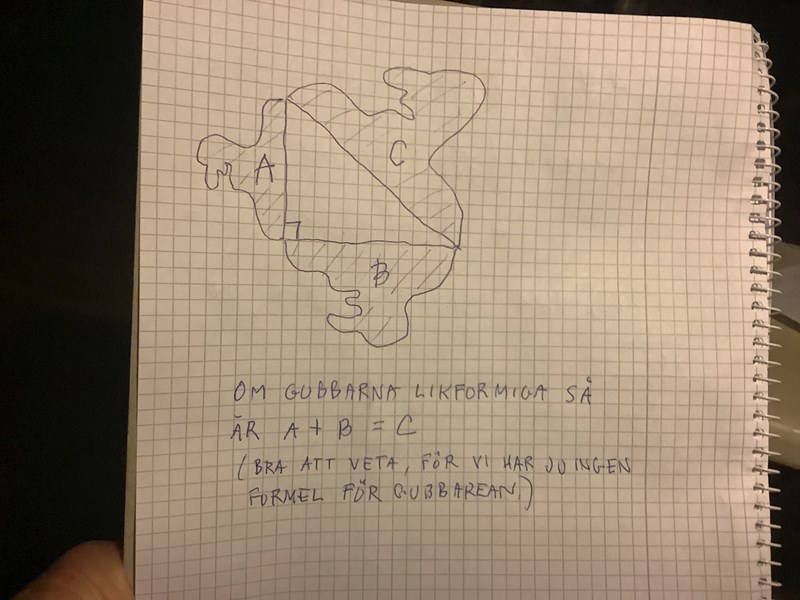 A
C
B
OM GUBBARNA LIKFORMIGA SÅ
ÄR A + B = C
(BRA ATT VETA, FÖR VI HAR JU INGEN
FORMEL FÖR GUBBAREAN)